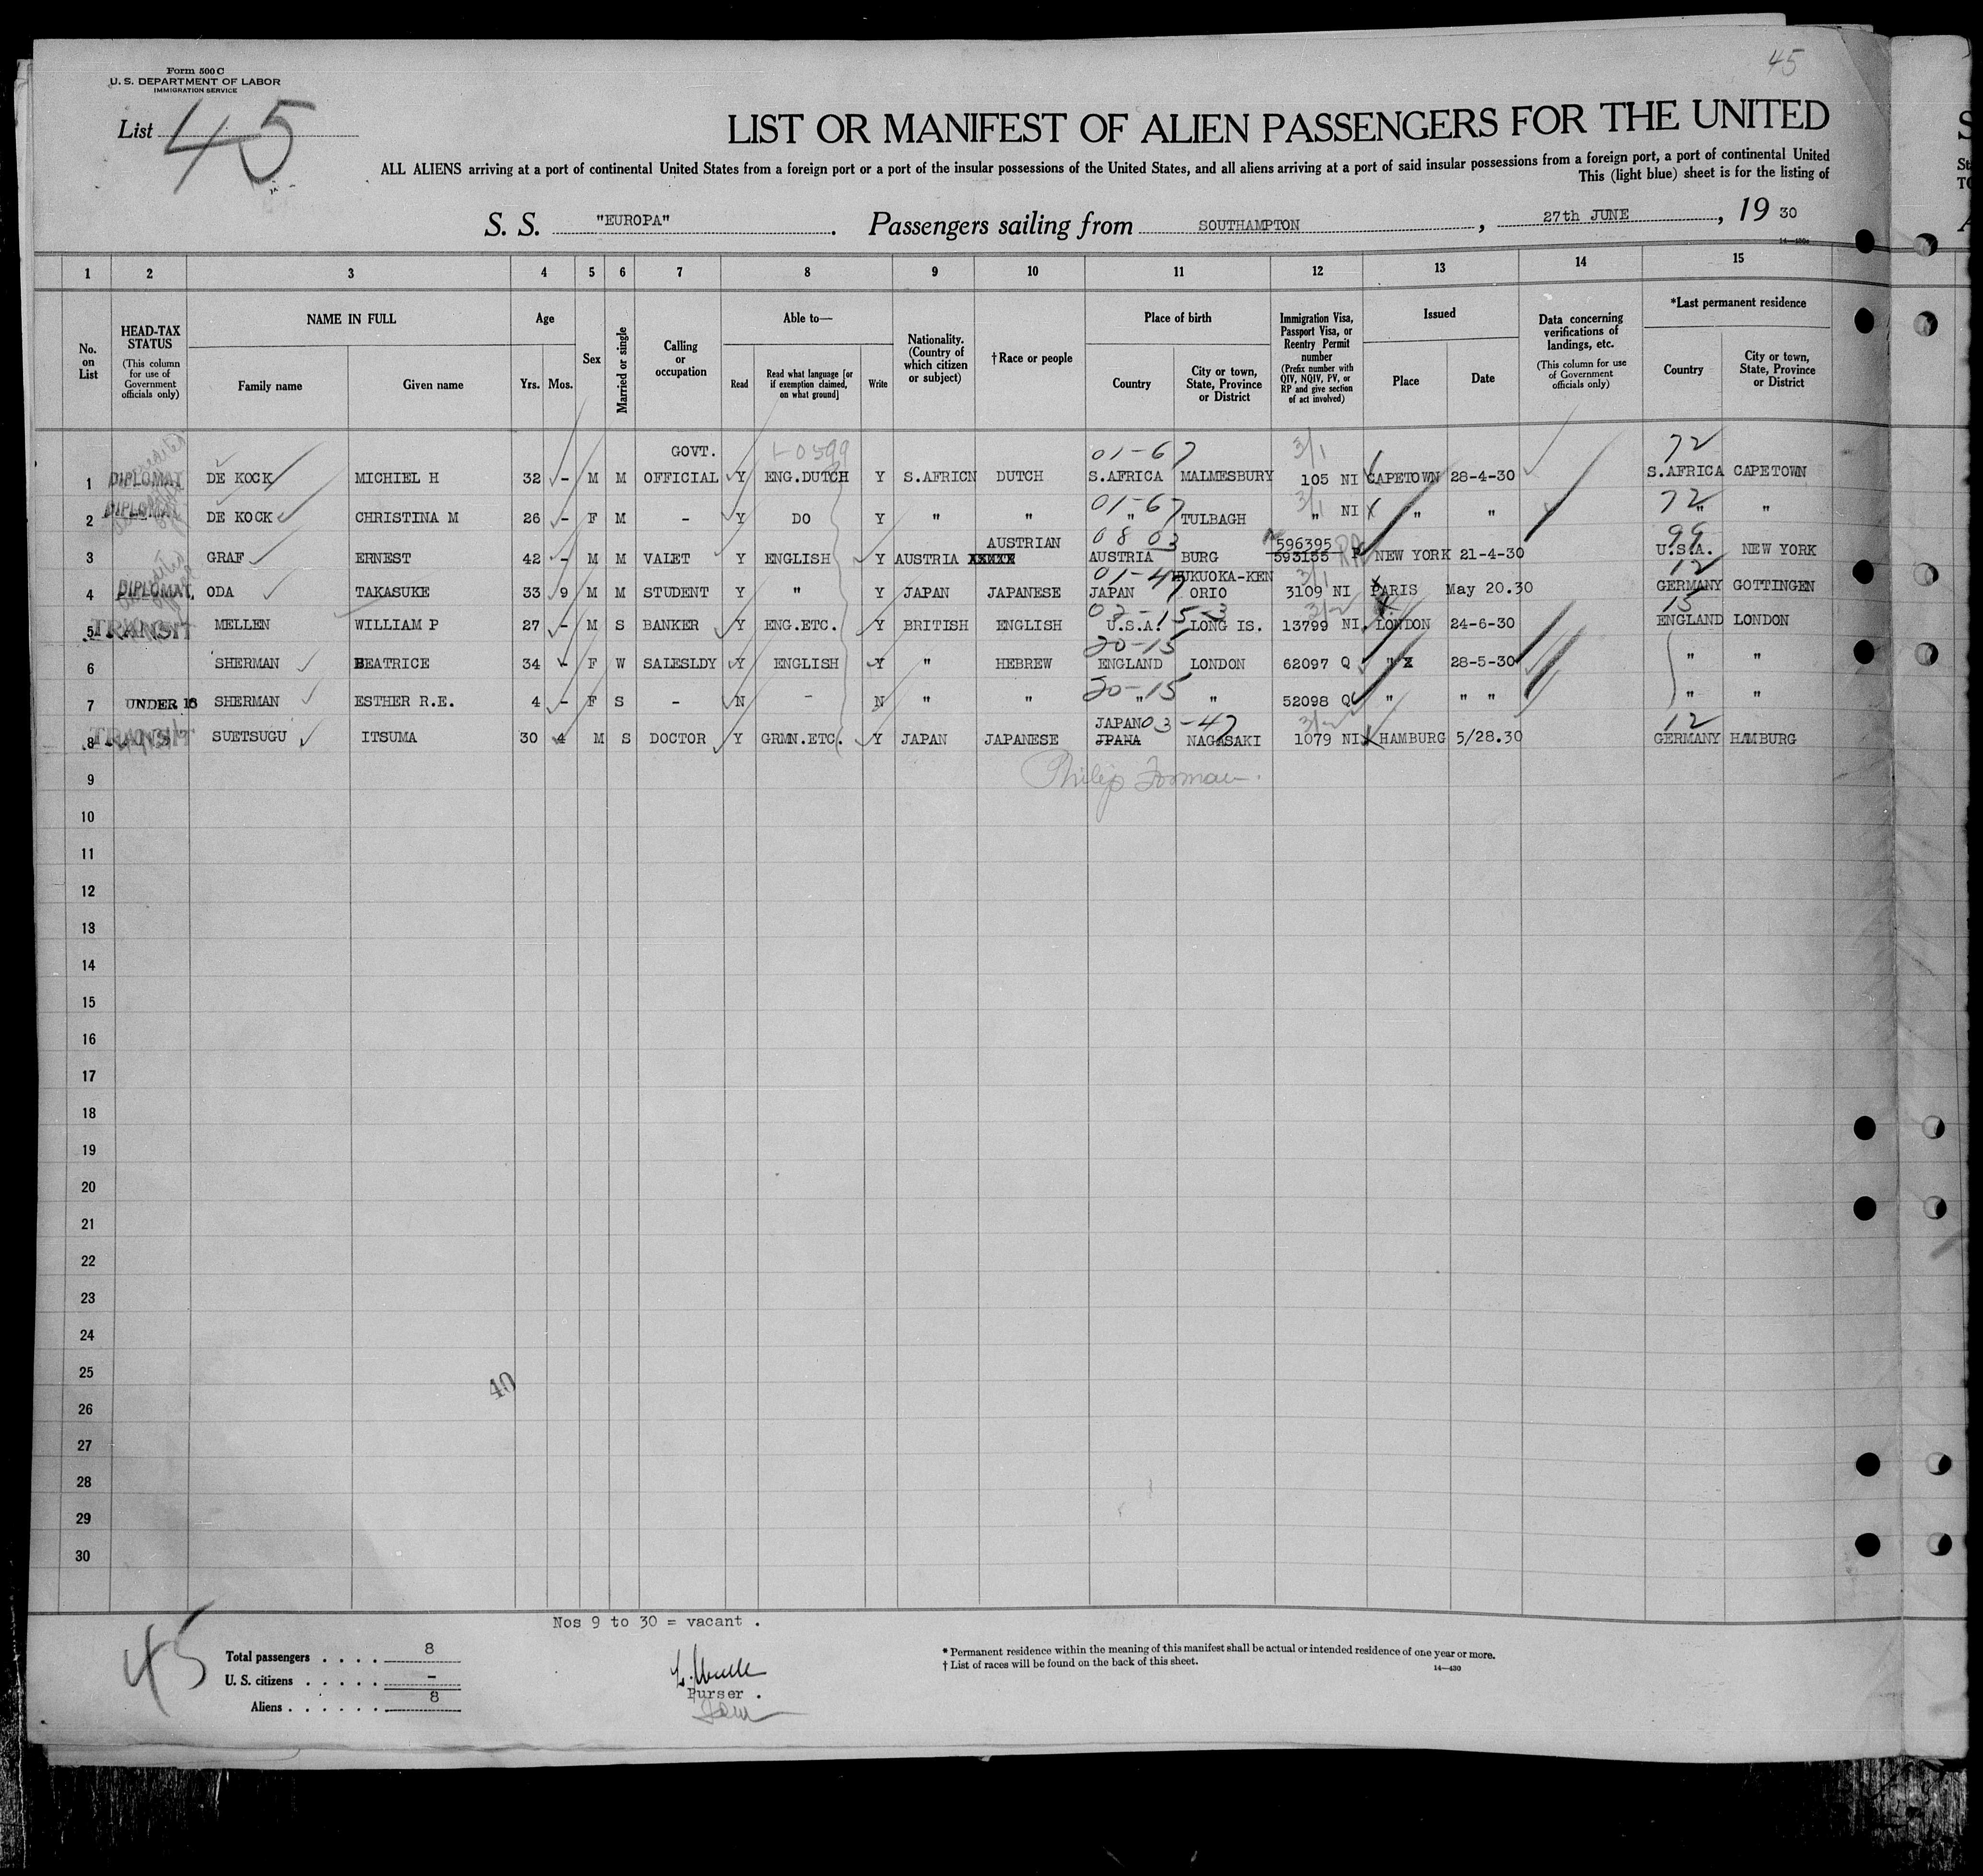 45
Form 500 C
U. S. DEPARTMENT OF LABOR
IMMIGRATION SERVICE
List 45
LIST OR MANIFEST OF ALIEN PASSENGERS FOR THE UNITED
ALL ALIENS arriving at a port of continental United States from a foreign port or a port of the insular possessions of the United States, and all aliens arriving at a port of said insular possessions from a foreign port, a port of continental United
This (light blue) sheet is for the listing of
S. S. "EUROPA". Passengers sailing from SOUTHAMPTON, 27th JUNE, 19 30
14—430a
1 2 3 4 5 6 7 8 9 10 11 12 13 14 15
No. on List
HEAD-TAX STATUS (This column for use of Government officials only)
NAME IN FULL
Family name
Given name
Age
Yrs. Mos.
Sex
Married or single
Calling or occupation
Able to—
Read
Read what language [or if exemption claimed, on what ground]
Write
Nationality. (Country of which citizen or subject)
†Race or people
Place of birth
Country
City or town, State, Province or District
Immigration Visa, Passport Visa, or Reentry Permit number (Prefix number with QIV, NQIV, PV, or RP and give section of act involved)
Issued
Place
Date
Data concerning verifications of landings, etc. (This column for use of Government officials only)
*Last permanent residence
Country
City or town, State, Province or District
GOVT. 1-0599 01-67 3/1 72
1 DIPLOMAT DE KOCK MICHIEL H 32 - M M OFFICIAL Y ENG.DUTCH Y S.AFRICN DUTCH S.AFRICA MALMESBURY 105 NI CAPETOWN 28-4-30 S.AFRICA CAPETOWN
01-67 3/1 72
2 DIPLOMAT DE KOCK CHRISTINA M 26 - F M - Y DO Y " " " TULBAGH " NI " " " "
AUSTRIAN 08 03 596395 99
3 GRAF ERNEST 42 - M M VALET Y ENGLISH Y AUSTRIA XXXXX AUSTRIA BURG 593155 P NEW YORK 21-4-30 U.S.A. NEW YORK
01-47 FUKUOKA-KEN 3/1 12
4 DIPLOMAT. ODA TAKASUKE 33 9 M M STUDENT Y " Y JAPAN JAPANESE JAPAN ORIO 3109 NI PARIS May 20.30 GERMANY GOTTINGEN
02-15-3 3/2 15
5 TRANSIT MELLEN WILLIAM P 27 - M S BANKER Y ENG.ETC. Y BRITISH ENGLISH U.S.A. LONG IS. 13799 NI LONDON 24-6-30 ENGLAND LONDON
20-15
6 SHERMAN BEATRICE 34 - F W SALESLDY Y ENGLISH Y " HEBREW ENGLAND LONDON 62097 Q " 28-5-30 " "
20-15
7 UNDER 16 SHERMAN ESTHER R.E. 4 - F S - N - N " " " " 52098 Q " " " " "
JAPAN 03-47 3/2 12
8 TRANSIT SUETSUGU ITSUMA 30 4 M S DOCTOR Y GRMN.ETC. Y JAPAN JAPANESE JPANA NAGASAKI 1079 NI HAMBURG 5/28.30 GERMANY HAMBURG
Philip Forman.
9
10
11
12
13
14
15
16
17
18
19
20
21
22
23
24
25
40
26
27
28
29
30
Nos 9 to 30 = vacant .
45
Total passengers . . . . 8
U. S. citizens . . . . . -
Aliens . . . . . . 8
Purser .
* Permanent residence within the meaning of this manifest shall be actual or intended residence of one year or more.
† List of races will be found on the back of this sheet.
14—430